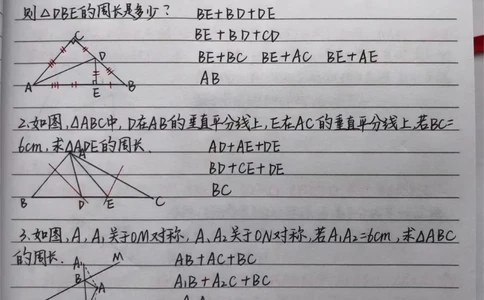 则△DBE的周长是多少? BE+BD+DE
BE+BD+CD
BE+BC BE+AC BE+AE
AB
C
D
A
E
B
2.如图,△ABC中,D在AB的垂直平分线上,E在AC的垂直平分线上,若BC=
6cm,求△ADE的周长. AD+AE+DE
BD+CE+DE
BC
A
B
D
E
C
3.如图,A,A₁关于OM对称,A、A₂关于ON对称,若A₁A₂=6cm,求△ABC
的周长. AB+AC+BC
A₁B+A₂C+BC
A₁
M
B
A